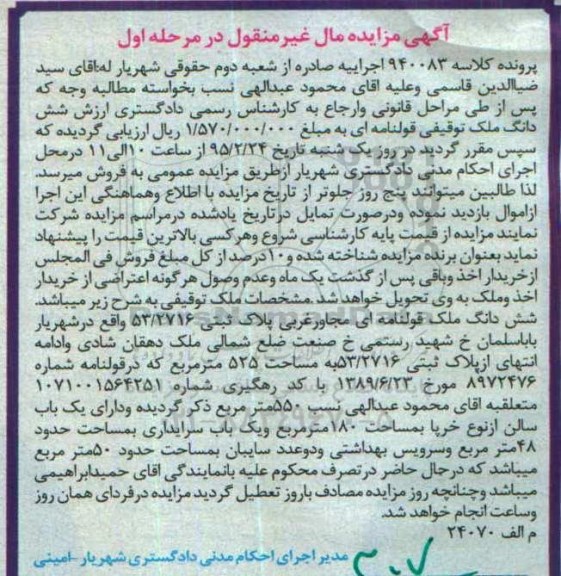 آگهی مزایده مال غیرمنقول در مرحله اول
پرونده کلاسه ۹۴۰۰۸۳ اجراییه صادره از شعبه دوم حقوقی شهریار له:اقای سید
ضیاالدین قاسمی وعلیه اقای محمود عبدالهی نسب بخواسته مطالبه وجه که
پس از طی مراحل قانونی وارجاع به کارشناس رسمی دادگستری ارزش شش
دانگ ملک توقیفی قولنامه ای به مبلغ ۱/۵۷۰/۰۰۰/۰۰۰ ریال ارزیابی گردیده که
سپس مقرر گردید در روز یک شنبه تاریخ ۹۵/۲/۲۴ از ساعت ۱۰الی۱۱ درمحل
اجرای احکام مدنی دادگستری شهریار ازطریق مزایده عمومی به فروش میرسد.
لذا طالبین میتوانند پنج روز جلوتر از تاریخ مزایده با اطلاع وهماهنگی این اجرا
ازاموال بازدید نموده ودرصورت تمایل درتاریخ یادشده درمراسم مزایده شرکت
نمایند مزایده از قیمت پایه کارشناسی شروع وهرکسی بالاترین قیمت را پیشنهاد
نماید بعنوان برنده مزایده شناخته شده و۱۰درصد از کل مبلغ فروش فی المجلس
ازخریدار اخذ وباقی پس از گذشت یک ماه وعدم وصول هرگونه اعتراضی از خریدار
اخذ وملک به وی تحویل خواهد شد .مشخصات ملک توقیفی به شرح زیر میباشد.
شش دانگ ملک قولنامه ای مجاورغربی پلاک ثبتی ۵۳/۲۷۱۶ واقع درشهریار
باباسلمان خ شهید رستمی خ صنعت ضلع شمالی ملک دهقان شادی وادامه
انتهای ازپلاک ثبتی ۵۳/۲۷۱۶به مساحت ۵۲۵ مترمربع که درقولنامه شماره
۸۹۷۲۴۷۶ مورخ ۱۳۸۹/۶/۲۳ با کد رهگیری شماره ۱۰۷۱۰۰۱۵۶۴۲۵۱
متعلقبه اقای محمود عبدالهی نسب ۵۵۰متر مربع ذکر گردیده ودارای یک باب
سالن ازنوع خرپا بمساحت ۱۸۰مترمربع ویک باب سرایداری بمساحت حدود
۴۸متر مربع وسرویس بهداشتی ودوعدد سایبان بمساحت حدود ۵۰متر مربع
میباشد که درحال حاضر درتصرف محکوم علیه بانمایندگی اقای حمیدابراهیمی
میباشد وچنانچه روز مزایده مصادف باروز تعطیل گردید مزایده درفردای همان روز
وساعت انجام خواهد شد.
م الف ۲۴۰۷۰
مدیر اجرای احکام مدنی دادگستری شهریار -امینی